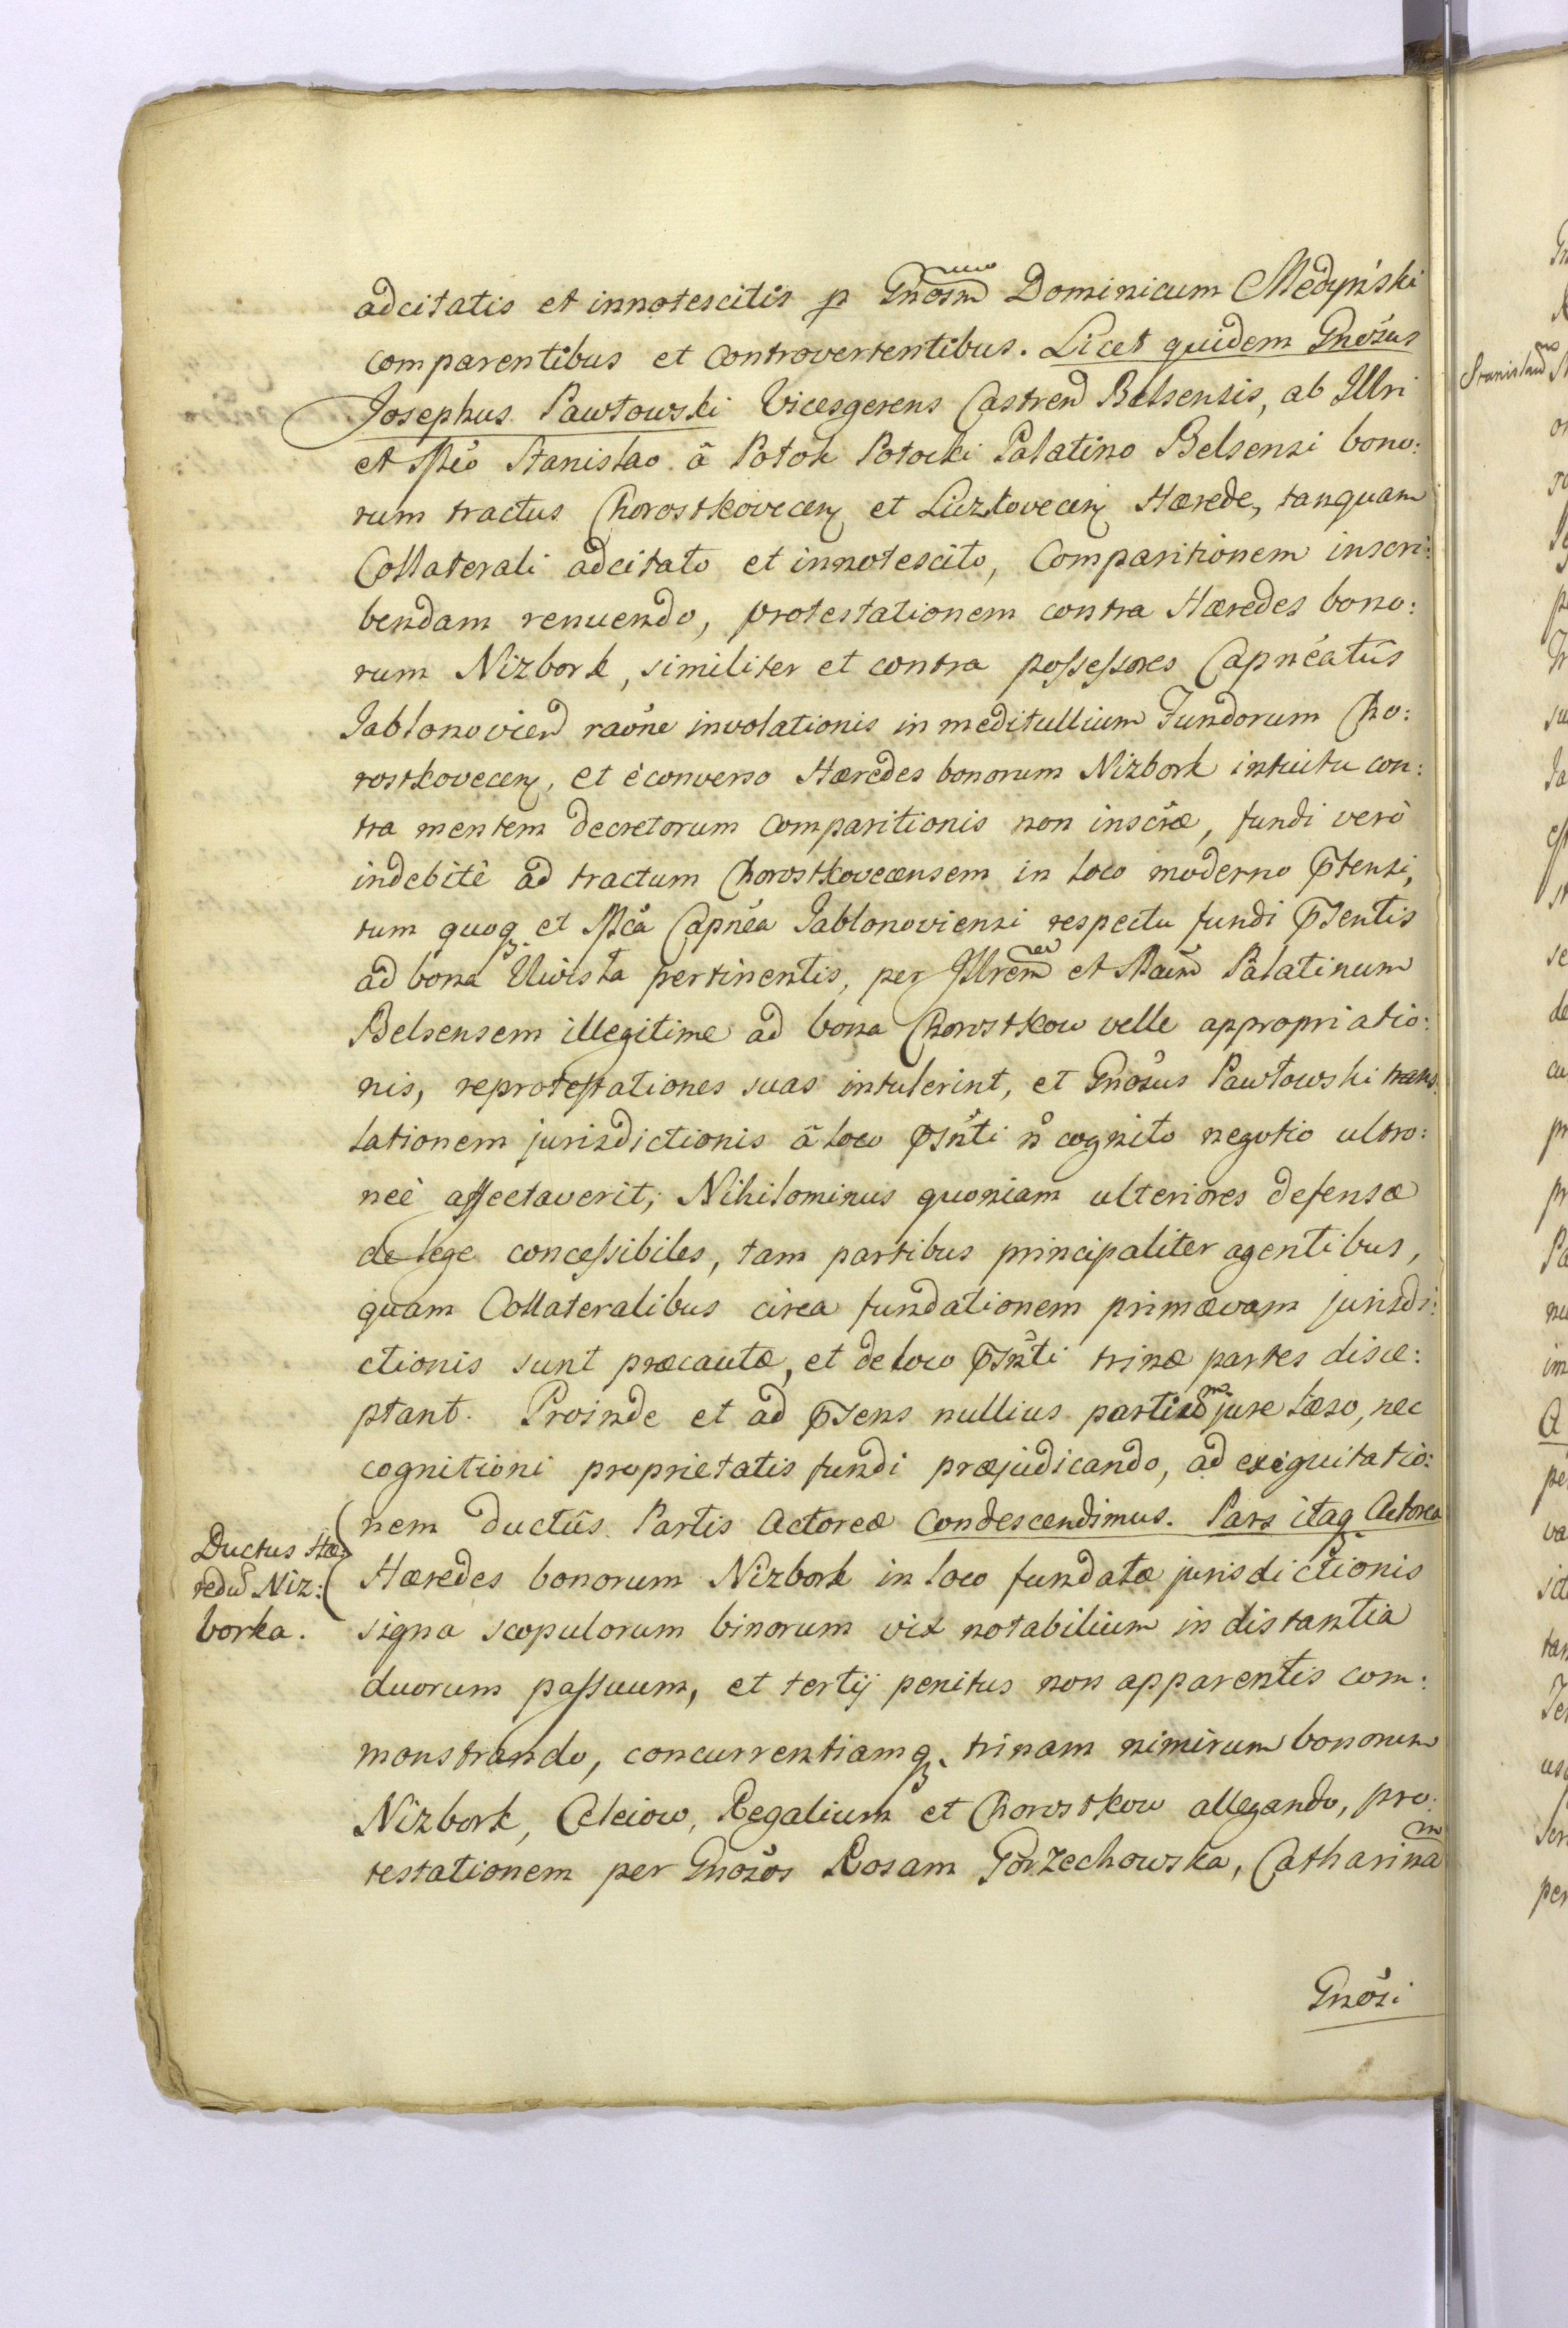 adcitatis et innotescitis p Gnosm Dominicum Medyński
comparentibus et Controvertentibus. Licet quidem Gnosus
Josephus Pawłowski Vicesgerens Castren Belsensis, ab Illri
et Mco Stanislao â Potok Potocki Palatino Belsensi bono:
rum tractus Chorostkovecen et Liczkovecen Hærede, tanquam
Collaterali adcitato et innotescito, Comparitionem inscri:
bendam renuendo, protestationem contra Hæredes bono:
rum Nizbork, similiter et contra possessores Capnéatûs
Jablonovien raõne involationis in meditullium Fundorum Cho:
rostkovecen, et èconverso Hæredes bonorum Nizbork intuitu con:
tra mentem decretorum comparitionis non inscræ, fundi verò
indebitè ad tractum Chorostkovecensem in loco moderno ptensi,
tum quoq et Mca Capnéa Jablonoviensi respectu fundi psentis
ad bona Uwisła pertinentis, per Illrem et Mcum Palatinum
Belsensem illegitime ad bona Chorostkow velle appropriatio:
nis, reprotestationes suas intulerint, et Gnosus Pawłowski trans
lationem jurisdictionis â loco psnti ñ cognito negotio ultro:
neè affectaverit; Nihilominus quoniam ulteriores defensæ
de lege concessibiles, tam partibus principaliter agentibus,
quam Collateralibus circa fundationem primævam jurisdi:
ctionis sunt præcautæ, et de loco psnti trinæ partes disce:
ptant. Proinde et ad psens nullius partium jure læso, nec
cognitioni proprietatis fundi præjudicando, ad exequitatio:
nem ductûs Partis Actoreæ Condescendimus. Pars itaq Actorea
Ductus Hæ:
redu Niz:
borka.
Hæredes bonorum Nizbork in loco fundatæ jurisdictionis
signa scopulorum binorum vix notabilium in distantia
duorum passuum, et tertij penitus non apparentis com:
monstrando, concurrentiamq trinam nimirum bonorum
Nizbork, Celeiow, Regalium et Chorostkow allegando, pro:
testationem per Gnosos Rosam Gorzechowska, Catharina
Gnosi